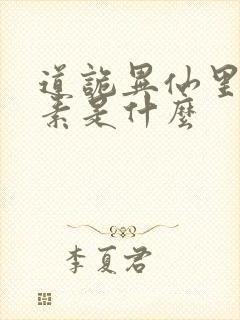 道詭異仙里
素是什麼
李夏君